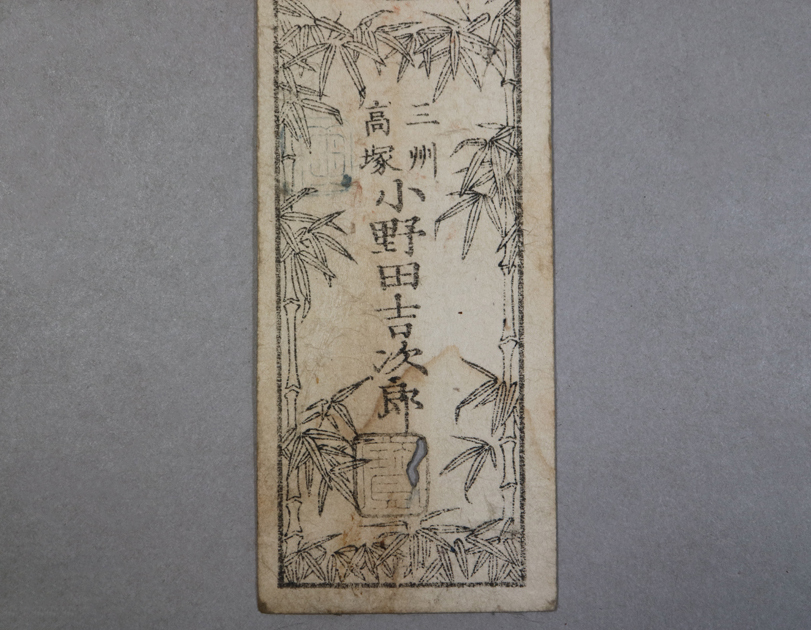 三州
高塚
小野田吉次郎